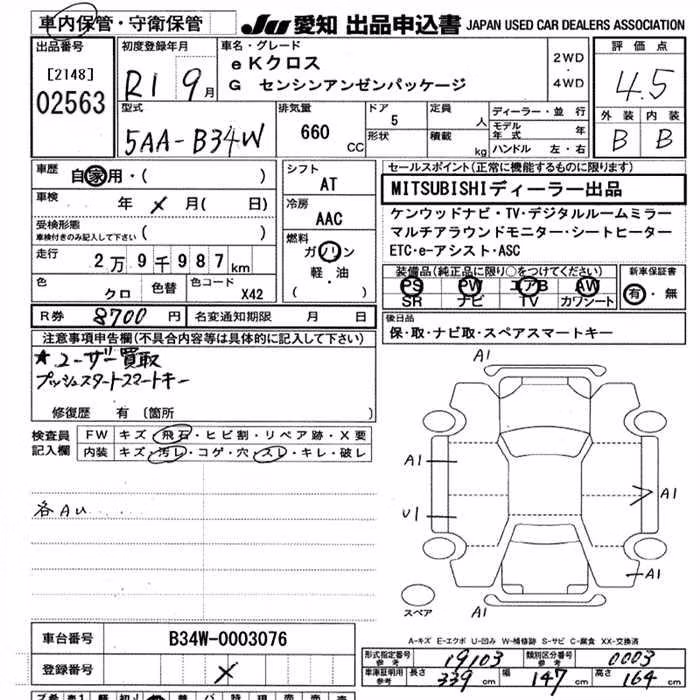 車内保管・守衛保管
JU 愛知 出品申込書 JAPAN USED CAR DEALERS ASSOCIATION
出品番号
[2148]
02563
初度登録年月
R1 9月
車名・グレード
eKクロス
G センシンアンゼンパッケージ
2WD
・
4WD
評価点
4.5
外装 内装
B B
型式
5AA-B34W
排気量
660 CC
ドア
5
形状
定員
人
積載
kg
ディーラー・並行
モデル年式 年
ハンドル 左・右
車歴
自家用・( )
車検
年 × 月( 日)
受検形態
車検付きのみ記入して下さい ( )
走行
2万9千987km
色
クロ
色替
色コード
X42
シフト
AT
冷房
AAC
燃料
ガソリン
軽・油
( )
セールスポイント(正常に機能するものに限ります)
MITSUBISHIディーラー出品
ケンウッドナビ・TV・デジタルルームミラー
マルチアラウンドモニター・シートヒーター
ETC・e-アシスト・ASC
装備品(純正品に限り○をつけてください)
PS PW エアB AW
SR ナビ TV カワシート
新車保証書
有・無
R券 8700円
名変通知期限 月 日
後日品
保・取・ナビ取・スペアスマートキー
注意事項申告欄(不具合内容等は具体的に記入して下さい)
★ユーザー買取
プッシュスタートスマートキー
修復歴 有 (箇所 )
検査員
記入欄
FW キズ・飛石・ヒビ割・リペア跡・X要
内装 キズ・汚レ・コゲ・穴・スレ・キレ・破レ
各AU
A1
A1
U1
A1
A1
A1
スペア
A-キズ E-エクボ U-凹み W-補修跡 S-サビ C-腐食 XX-交換済
車台番号 B34W-0003076
登録番号 ×
形式指定番号
参考
19103
類別区分番号
参考
0003
車庫証明用
参考
長さ 339cm 幅 147cm 高さ 164cm